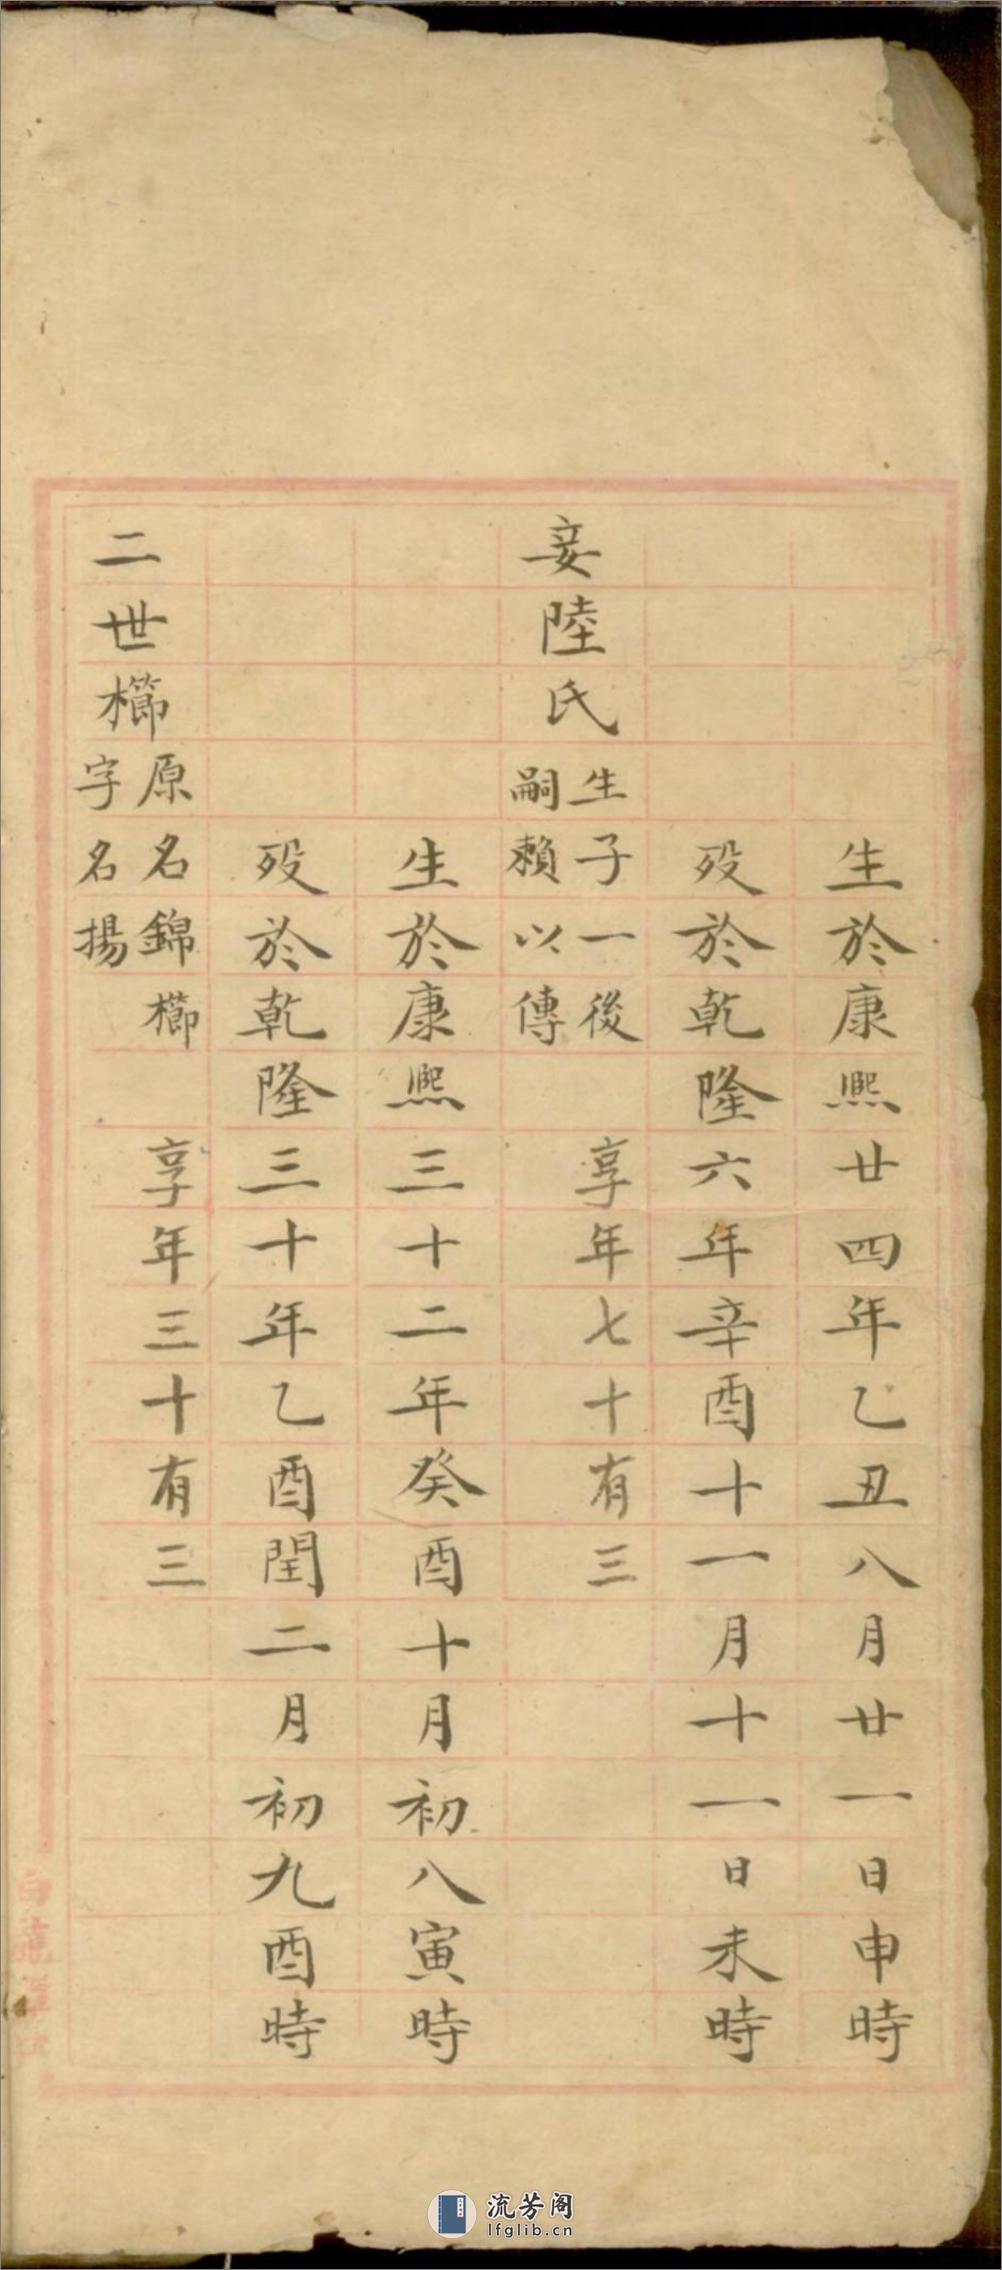 生於康熙廿四年乙丑八月廿一日申時
殁於乾隆六年辛酉十一月十一日未時
妾陸氏
生子一後
嗣賴以傳
享年七十有三
生於康熙三十二年癸酉十月初八寅時
殁於乾隆三十年乙酉閏二月初九酉時
二世櫛
原名錦櫛
字名揚
享年三十有三
流芳阁
lfglib.cn